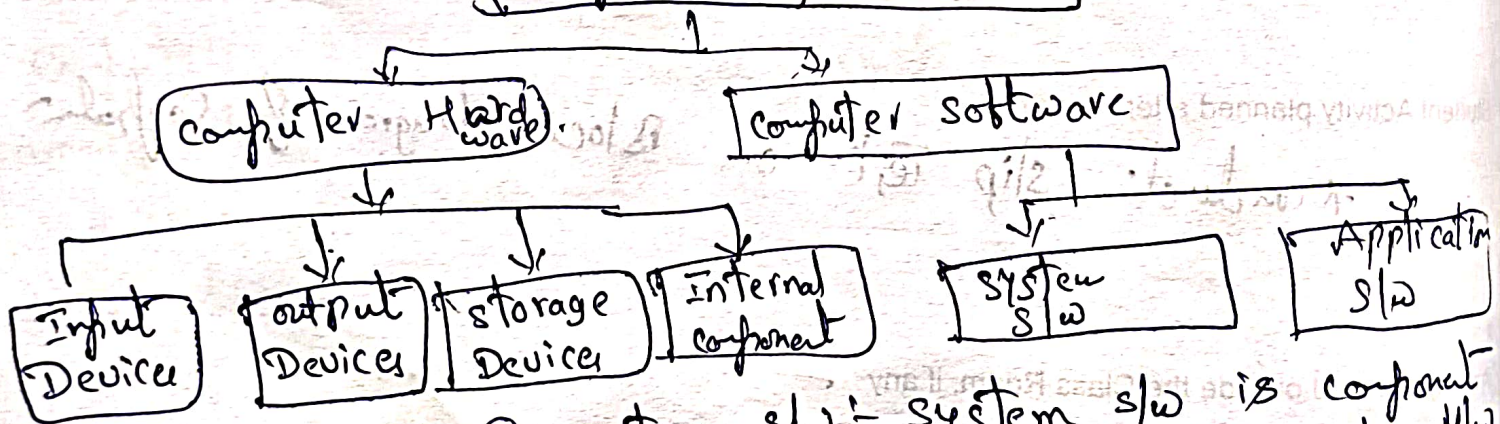 Computer Hardware.
Computer Software
Input
Devices
output
Devices
Storage
Devices
Internal
Component
System
S/w
Application
S/w
System s/w is component